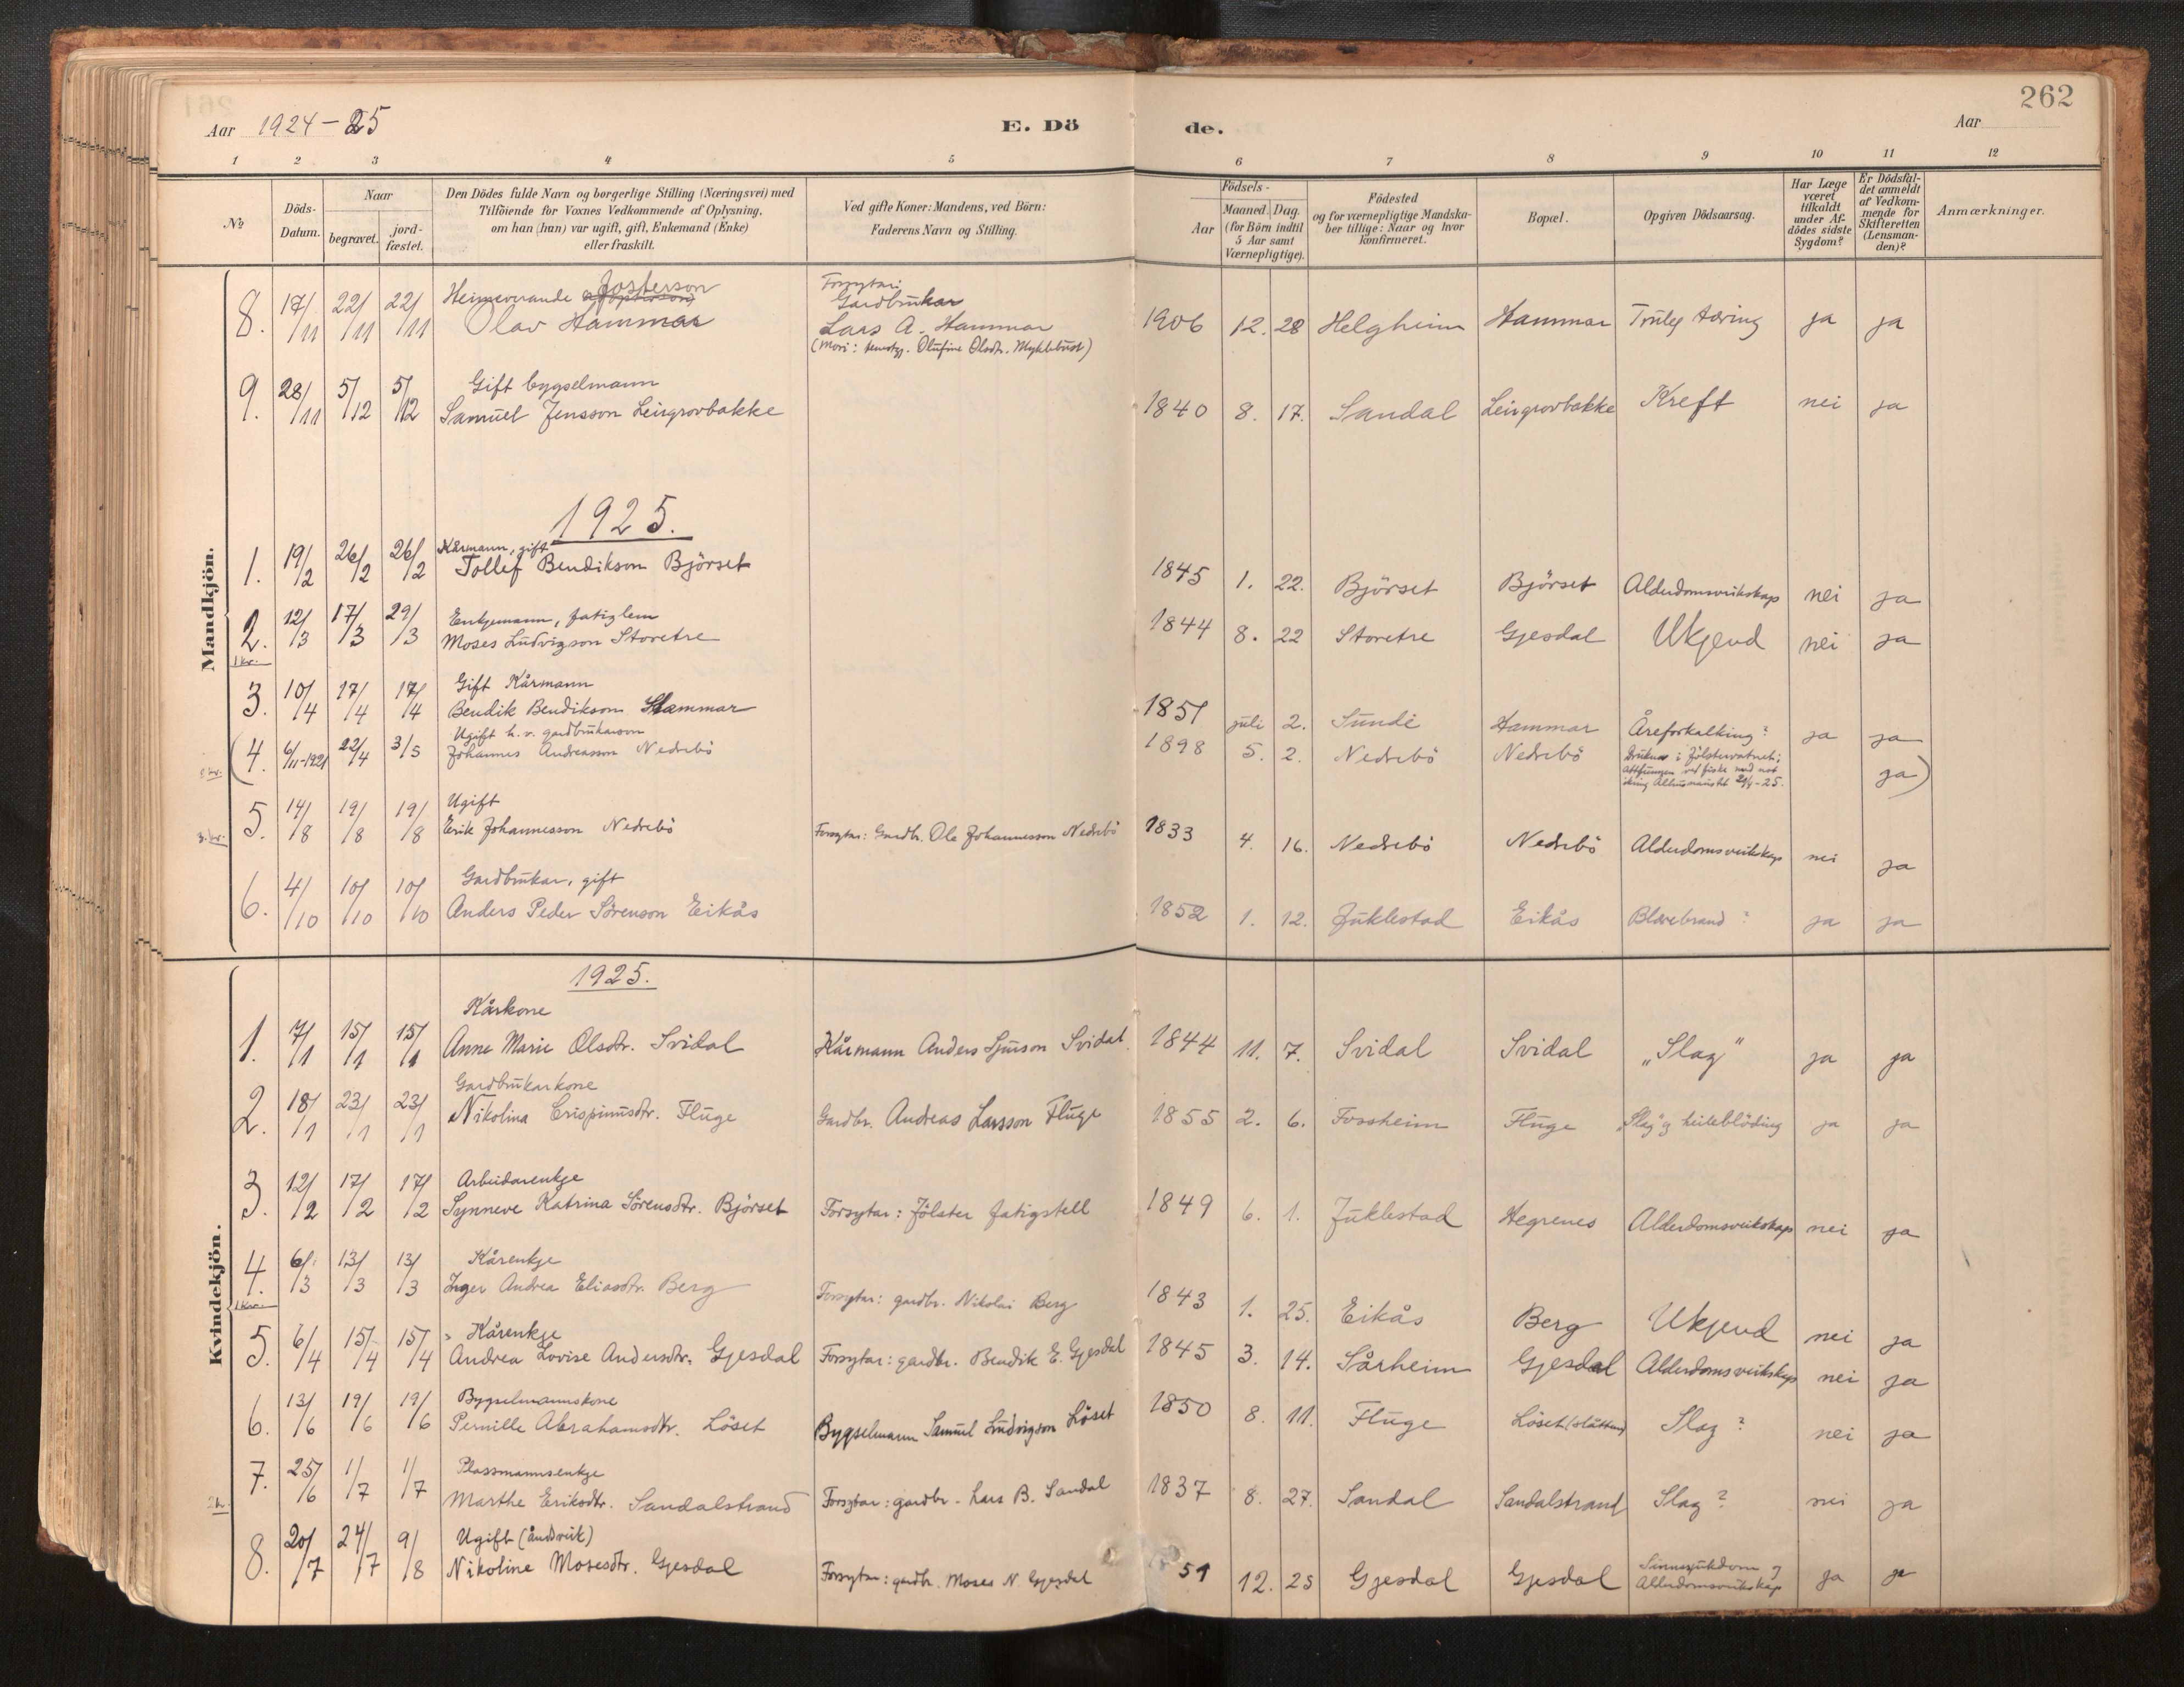 262
Aar 1924-25 E. Dö de. Aar
1 2 3 4 5 6 7 8 9 10 11 12
No
Döds-Datum.
Naar
begravet.
jord-fæstet.
Den Dödes fulde Navn og borgerlige Stilling (Næringsvei) med
Tilföiende for Voxnes Vedkommende af Oplysning,
om han (hun) var ugift, gift, Enkemand (Enke)
eller fraskilt.
Ved gifte Koner: Mandens, ved Börn:
Faderens Navn og Stilling.
Födsels-
Aar
Maaned. Dag.
(for Börn indtil
5 Aar samt
Værnepligtige).
Födested
og for værnepligtige Mandska-
ber tillige: Naar og hvor
konfirmeret.
Bopæl.
Opgiven Dödsaarsag.
Har Læge
været
tilkaldt
under Af-
dödes sidste
Sygdom?
Er Dödsfal-
det anmeldt
af Vedkom-
mende for
Skifteretten
(Lensman-
den)?
Anmærkninger.
Mandkjön.
Heimeverande Fosterson Forsytar:
Gardbrukar
8. 17/11 22/11 22/11 Olav Hammar Lars A. Hammar 1906 12. 28 Helgheim Hammar Truleg tæring ja ja
(Mori: Olufine Olsdtr. Myklebust)
Gift bygselmann
9. 28/11 5/12 5/12 Samuel Jensson Leirgrovbakke 1840 8. 17. Sandal Leirgrovbakke Kreft nei ja
1925.
Kårmann, gift
1. 19/2 26/2 26/2 Tollef Bendikson Björset 1845 1. 22. Björset Björset Alderdomsveikskap nei ja
Enkjemann, fatiglem
2. 12/3 17/3 29/3 Moses Ludvigson Storetre 1844 8. 22 Storetre Gjesdal Ukjend nei ja
1 kr.
Gift Kårmann
3. 10/4 17/4 17/4 Bendik Bendikson Hammar 1851 juli 2. Sunde Hammar Åreforkalking? ja ja
Ugift h.v. gardbrukarson
(4. 6/11-1921 22/4 3/5 Johannes Andreasson Nedrebö 1898 5. 2. Nedrebö Nedrebö Drukna i Jölstervatnet; ja)
attfunnen ved fiske med not
Ugift
3. kr. 5. 14/8 19/8 19/8 Erik Johannesson Nedrebö Forsytar: Gardbr. Ole Johannesson Nedrebö 1833 4. 16. Nedrebö Nedrebö Alderdomsveikskap nei ja
Gardbrukar, gift
6. 4/10 10/10 10/10 Anders Peder Sörenson Eikås 1852 1. 12. Juklestad Eikås Blærebrand? ja ja
Kvindekjön.
1925.
Kårkone
1. 7/1 15/1 15/1 Anne Marie Olsdtr. Svidal Kårmann Anders Sjurson Svidal. 1844 11. 7. Svidal Svidal „Slag" ja ja
Gardbrukarkone
2. 18/1 23/1 23/1 Nikolina Crispinusdtr. Fluge Gardbr. Andreas Larsson Fluge 1855 2. 6. Fossheim Fluge „Slag" og heileblöding ja ja
Arbeidarenkje
3. 12/2 17/2 17/2 Synneve Katrina Sörensdtr. Björset Forsytar: Jölster fatigstell 1849 6. 1. Juklestad Hegrenes Alderdomsveikskap nei ja
Kårenkje
4. 6/3 13/3 13/3 Inger Andrea Eliasdtr. Berg Forsytar: gardbr. Nikolai Berg 1843 1. 25. Eikås Berg Ukjend nei ja
1 kr.
Kårenkje
5. 6/4 15/4 15/4 Andrea Lovise Andersdtr. Gjesdal Forsytar: gardbr. Bendik E. Gjesdal 1845 3. 14. Sårheim Gjesdal Alderdomsveikskap nei ja
Bygselmannskone
6. 13/6 19/6 19/6 Pernille Abrahamsdtr. Löset Bygselmann Samuel Ludvigson Löset 1850 8. 11. Fluge Löset (Slåtten) Slag? nei ja
Plassmannsenkje
2 kr. 7. 25/6 1/7 1/7 Marthe Eriksdtr. Sandalstrand Forsytar: gardbr. Lars B. Sandal 1837 8. 27. Sandal Sandalstrand Slag? nei ja
Ugift (åndsveik) Sinnssjukdom og
8. 20/7 24/7 9/8 Nikoline Mosesdtr. Gjesdal Forsytar: gardbr. Moses N. Gjesdal 51 12. 25 Gjesdal Gjesdal Alderdomsveikskap ja ja